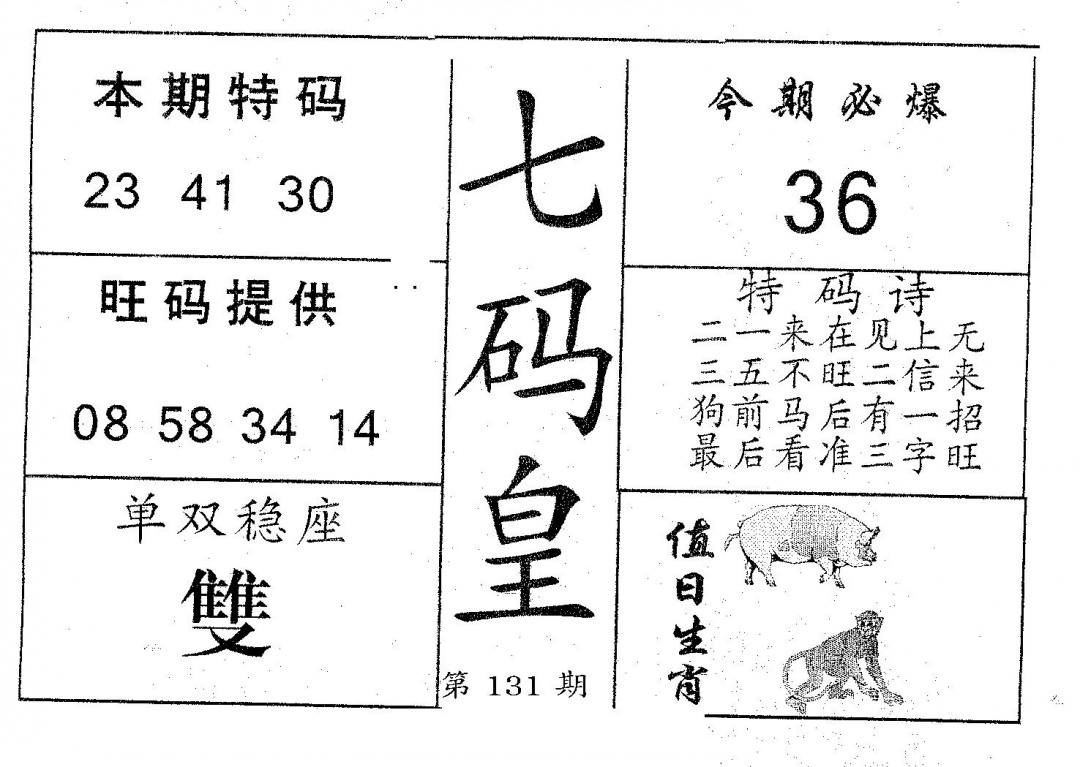 本期特码
23 41 30
旺码提供
08 58 34 14
单双稳座
雙
七码皇
第 131 期
今期必爆
36
特码诗
二一来在见上无
三五不旺二信来
狗前马后有一招
最后看准三字旺
值日生肖